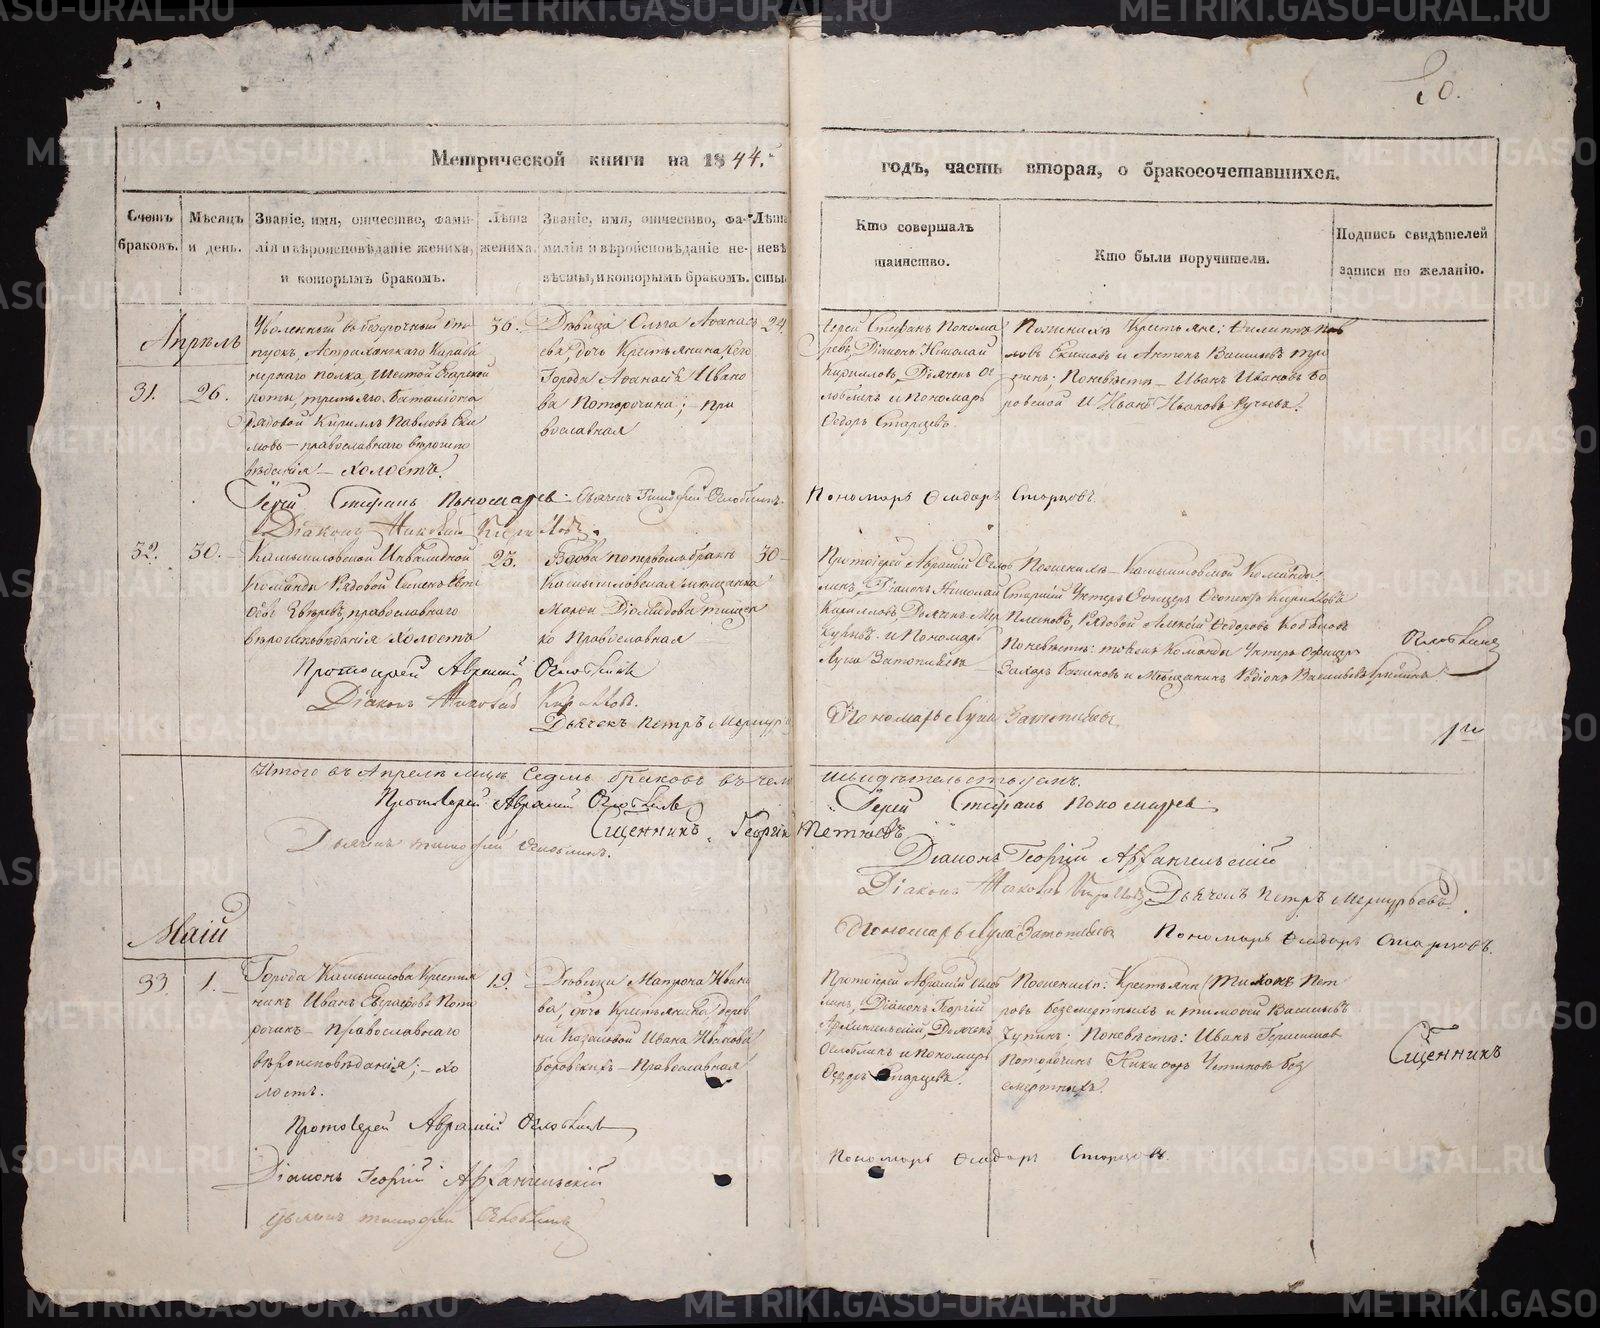 METRIKI.GASO-URAL.RU
50.
Метрической книги на 1844.
годъ, часть вторая, о бракосочетавшихся.
Счетъ браковъ.
Мѣсяцъ и день.
Званіе, имя, отчество, фами-
лія и вѣроисповѣданіе жениха,
и которымъ бракомъ.
Лѣта жениха.
Званіе, имя, отчество, фа-
милія и вѣроисповѣданіе не-
вѣсты, и которымъ бракомъ.
Лѣта невѣ сты
Кто совершалъ
таинство.
Кто были поручители.
Подпись свидѣтелей
записи по желанію.
Апрѣль
31.
26.
Уволенный въ безсрочный от
пускъ, Астраханскаго Караби
нернаго полка, шестой Егарской
роты, третьяго баталіона
Рядовой Кириллъ Павловъ Еки
мовъ – православнаго вѣроиспо
вѣданія – холостъ.
36.
Дѣвица Ольга Аѳанась
ева, дочь Крестьянина сего
Города Аѳанасія Ивано
ва Поторочина; – пра
вославная
24.
Іерей Стефанъ Понома
ревъ, Діаконъ Николай
Кирилловъ, Дьячекъ Ог
лоблинъ и Пономарь
Ѳедоръ Старцевъ.
По женихѣ Крестьяне: Филиппъ Пав
ловъ Екимовъ и Антонъ Васильевъ
По невѣстѣ – Иванъ Ивановъ Бо
ровской и Иванъ Ивановъ
Іерей Стефанъ Пономаревъ Дьячекъ Тимофей Оглоблинъ.
Пономарь Ѳедоръ Старцовъ.
Діаконъ Николай Кирилловъ.
32.
30.
Камышловской Инвалидной
Команды Рядовой Семенъ
православнаго
вѣроисповѣданія холостъ
23.
Вдова по первомъ бракѣ
Камышловская мѣщанка
Марѳа Діомидова
ко Православная
30
Протоіерей Аврамій Оглоб
линъ, Діаконъ Николай
Кирилловъ, Дьячекъ Мер
курьевъ и Пономарь
Лука Затопляевъ
По женихѣ – Камышловской Команды
Старшій Унтеръ Офицеръ Кирилловъ
Рядовой Алексѣй Ѳедоровъ
По невѣстѣ: той же Команды Унтеръ Офицеръ
Захаръ и Мѣщанинъ Родіонъ Васильевъ
Протоіерей Аврамій Оглоблинъ
Діаконъ Николай Кирилловъ.
Дьячекъ Петръ Меркурьевъ
Пономарь Лука Затопляевъ
Итого въ Апрелѣ м-цѣ седмь браковъ въ чемъ
и свидѣтельствуемъ.
Протоіерей Аврамій Оглоблинъ
Іерей Стефанъ Пономаревъ
Сщенникъ Георгій
Дьячекъ Тимофей Оглоблинъ.
Діаконъ Георгій Архангельскій
Діаконъ Николай Кирилловъ Дьячекъ Петръ Меркурьевъ.
Пономарь Лука Затопляевъ Пономарь Ѳедоръ Старцовъ.
Маій
33.
1.
Города Камышлова Крестья
нинъ Иванъ Евграфовъ Пото
рочинъ – Православнаго
вѣроисповѣданія; – хо
лостъ.
19.
Дѣвица Матрона Ивано
ва, дочь Крестьянина дерев
ни Ивана Иванова
Боровскихъ – Православная
Протоіерей Аврамій Оглоб
линъ, Діаконъ Георгій
Архангельскій, Дьячекъ
Оглоблинъ и Пономарь
Ѳедоръ Старцевъ.
По женихѣ: Крестьяне Тихонъ Пет
ровъ Безсмертныхъ и Тимофей Васильевъ
По невѣстѣ: Иванъ Герасимовъ
Поторочинъ Никифоръ Без
смертныхъ.
Сщенникъ
Протоіерей Аврамій Оглоблинъ
Діаконъ Георгій Архангельскій
Дьячекъ Тимофей Оглоблинъ
Пономарь Ѳедоръ Старцовъ.